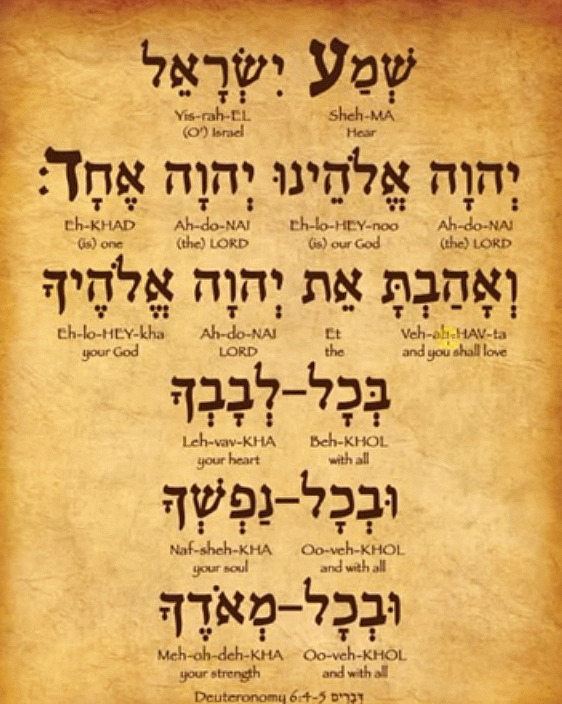 שְׁמַע יִשְׂרָאֵל
Yis-rah-EL Sheh-MA
(O') Israel Hear
יְהוָה אֱלֹהֵינוּ יְהוָה אֶחָד׃
Eh-KHAD Ah-do-NAI Eh-lo-HEY-noo Ah-do-NAI
(is) one (the) LORD (is) our God (the) LORD
וְאָהַבְתָּ אֵת יְהוָה אֱלֹהֶיךָ
Eh-lo-HEY-kha Ah-do-NAI Et Veh-ah-HAV-ta
your God LORD the and you shall love
בְּכָל-לְבָבְךָ
Leh-vav-KHA Beh-KHOL
your heart with all
וּבְכָל-נַפְשְׁךָ
Naf-sheh-KHA Oo-veh-KHOL
your soul and with all
וּבְכָל-מְאֹדֶךָ
Meh-oh-deh-KHA Oo-veh-KHOL
your strength and with all
Deuteronomy 6:4-5 דְּבָרִים